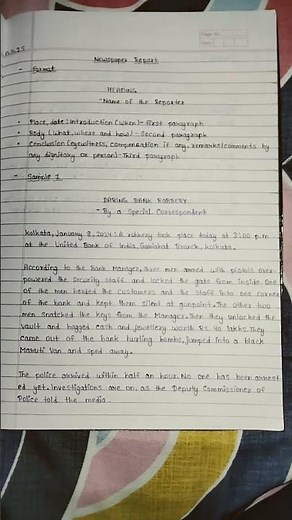 Newspaper Report
- Format
HEADING
- Name of the Reporter
• Place, date: Introduction (when)- First paragraph
• Body (What, where and how) - Second paragraph
• Conclusion (eyewitness, compensation if any, remarks/comments by
any dignitary or person)- Third paragraph
- Sample 1
DARING BANK ROBBERY
- By a Special Correspondent
Kolkata, January 8, 2024: A robbery took place today at 2:00 p.m
at the United Bank of India, Branch, Kolkata.
According to the Bank Manager, three men armed with pistols over-
powered the security staff and locked the gate from inside. One
of the men herded the customers and the staff into one corner
of the bank and kept them silent at gunpoint. The other two
men snatched the keys from the Manager. Then they unlocked the
vault and bagged cash and jewellery worth Rs. 40 lakhs. They
came out of the bank hurling bombs, jumped into a black
Maruti Van and sped away.
The police arrived within half an hour. No one has been arrest
ed yet. Investigations are on, as the Deputy Commissioner of
Police told the media.